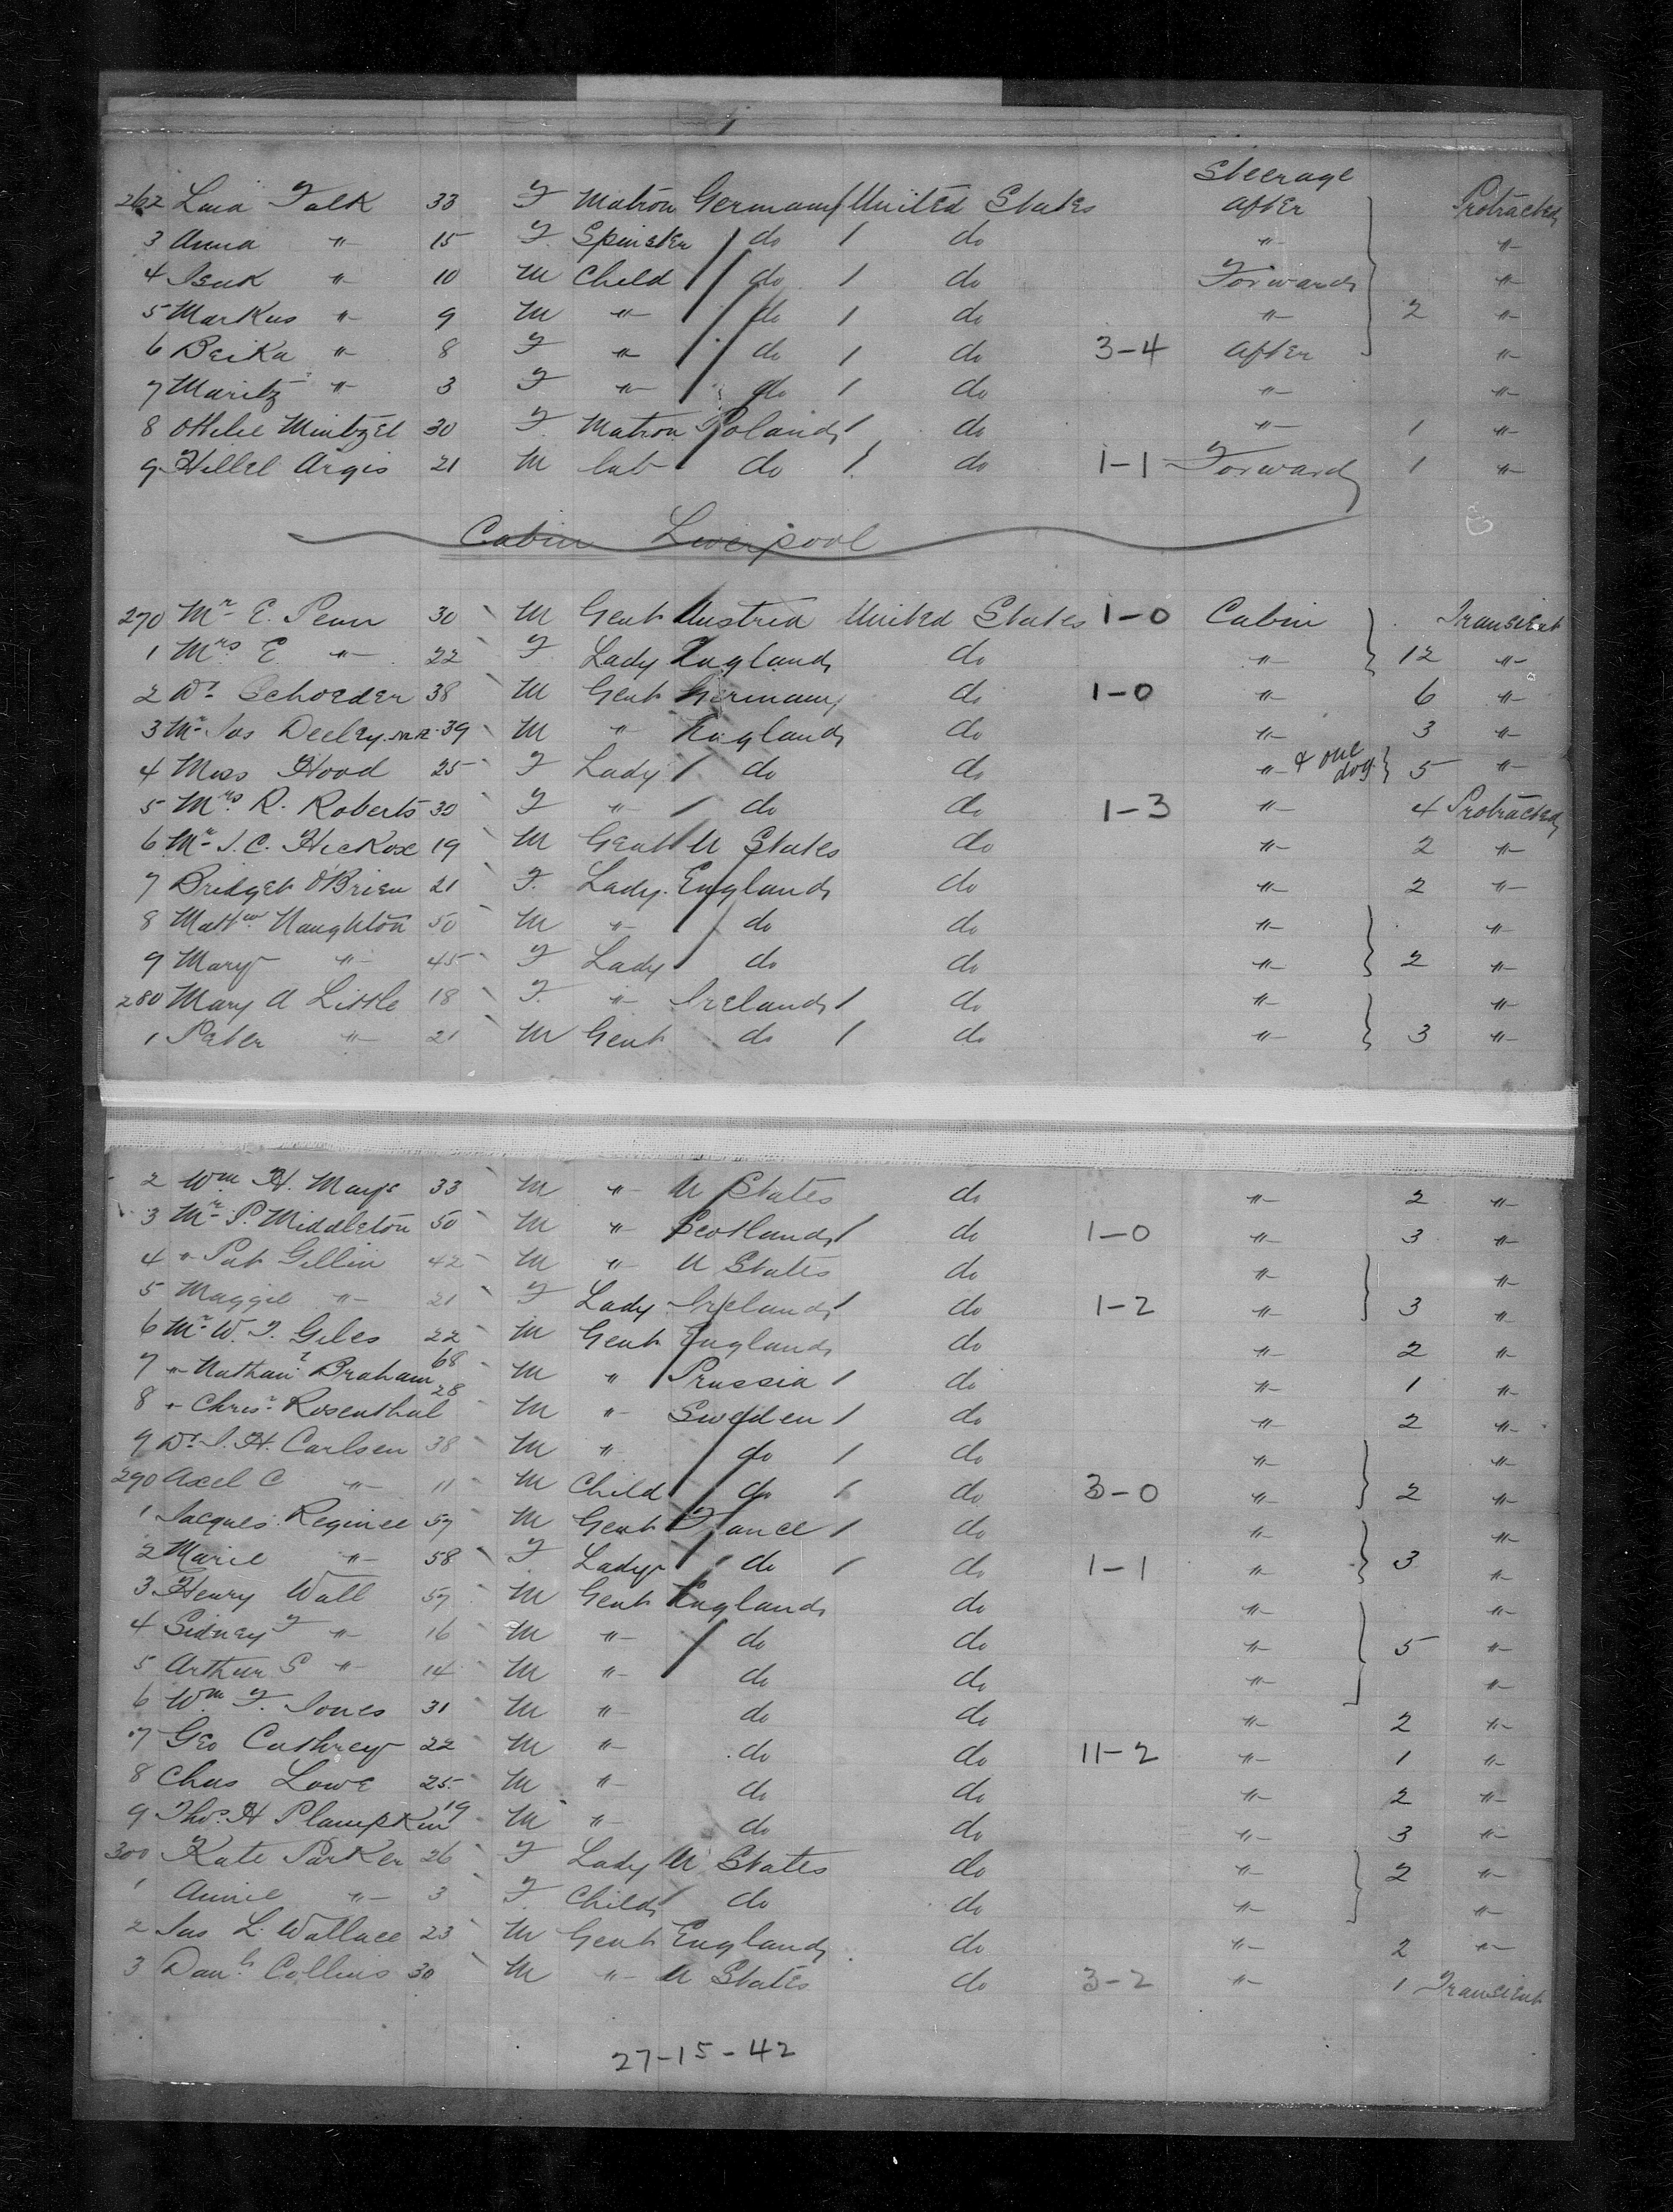 Steerage
262 Laia Falk 33 F Matron Germany United States After Protracted
3 Anna " 15 F Spinster do do " "
4 Isak " 10 M Child do do Forward "
5 Markus " 9 M " do do " 2 "
6 Beika " 8 F " do do 3-4 After "
7 Maritz " 3 F " do do " "
8 Ottilie Mintzel 30 F Matron Poland do " 1 "
9 Hillel Argis 21 M lab do do 1-1 Forward 1 "
Cabin Liverpool
270 Mr E. Penn 30 M Gent Austria United States 1-0 Cabin Transient
1 Mrs E " 22 F Lady England do " 12 "
2 Dr Schoeder 38 M Gent Germany do 1-0 " 6 "
3 Mr Jas 39 M " England do " 3 "
4 Miss Hood 25 F Lady do do " & one dog 5 "
5 Mrs R. Roberts 30 F " do do 1-3 " 4 Protracted
6 Mr J. C. Hickox 19 M Gent U States do " 2 "
7 Bridget O'Brien 21 F Lady England do " 2 "
8 Mattw Naughton 50 M " do do " "
9 Mary " 45 F Lady do do " 2 "
280 Mary A Little 18 F " Ireland do " "
1 Peter " 21 M Gent do do " 3 "
2 Wm H. Mays 33 M " U States do " 2 "
3 Mr P. Middleton 50 M " Scotland do 1-0 " 3 "
4 " Pat Gillin 42 M " U States do " "
5 Maggie " 21 F Lady Ireland do 1-2 " 3 "
6 Mr W. F. Giles 22 M Gent England do " 2 "
7 " Nathan Braham 68 M " Prussia do " 1 "
8 " Chris. Rosenthal 28 M " Sweden do " 2 "
9 Dr J. H. Carlsen 38 M " do do " "
290 Axel C " 11 M Child do do 3-0 " 2 "
1 Jacques 57 M Gent France do " "
2 Marie " 58 F Lady do do 1-1 " 3 "
3 Henry Wall 57 M Gent England do " "
4 Sidney F " 16 M " do do " 5 "
5 Arthur S " 14 M " do do " "
6 Wm F. Jones 31 M " do do " 2 "
7 Geo 22 M " do do 11-2 " 1 "
8 Chas Lowe 25 M " do do " 2 "
9 Thos. H Plampkin 19 M " do do " 3 "
300 Kate Parker 26 F Lady U States do " 2 "
1 Annie " 3 F Child do do " "
2 Jas L. Wallace 23 M Gent England do " 2 "
3 Danl Collins 30 M " U States do 3-2 " 1 Transient
27-15-42